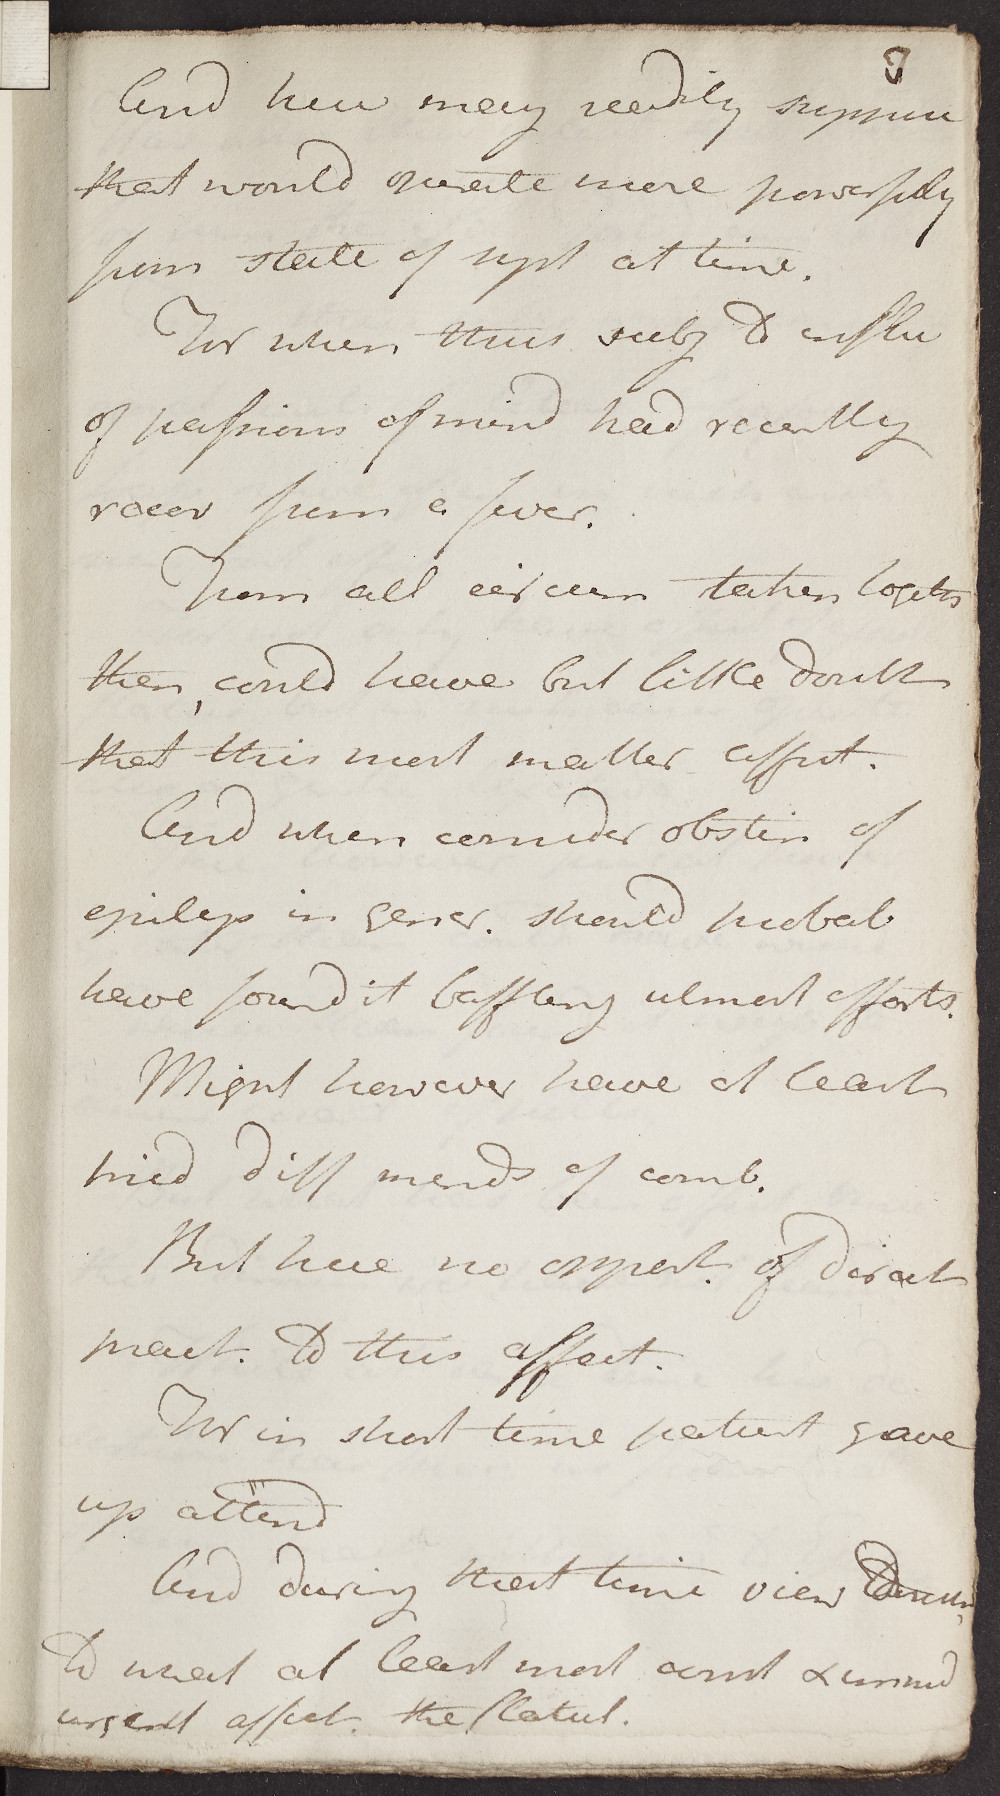 And here may readily suppose
that would operate more powerfuly
from state of syst at time.
For when thus subj to influ
of passions of mind had recently
recov from a fever.
From all circum taken togeth
then, could have but little doubt
that this most matter affect.
And when consider obstin of
epilep in gener. should probab
have found it baffling utmost efforts.
Might however have at least
tried diff meads of comb.
But here no opport. of direct
pract. to this affect.
For in short time patient gave
up attend
And during that time view
to what at least most const & immed
urgent affect. the flatul.